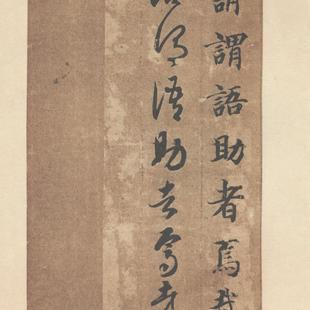 謂語助者焉哉
謂語助者焉哉